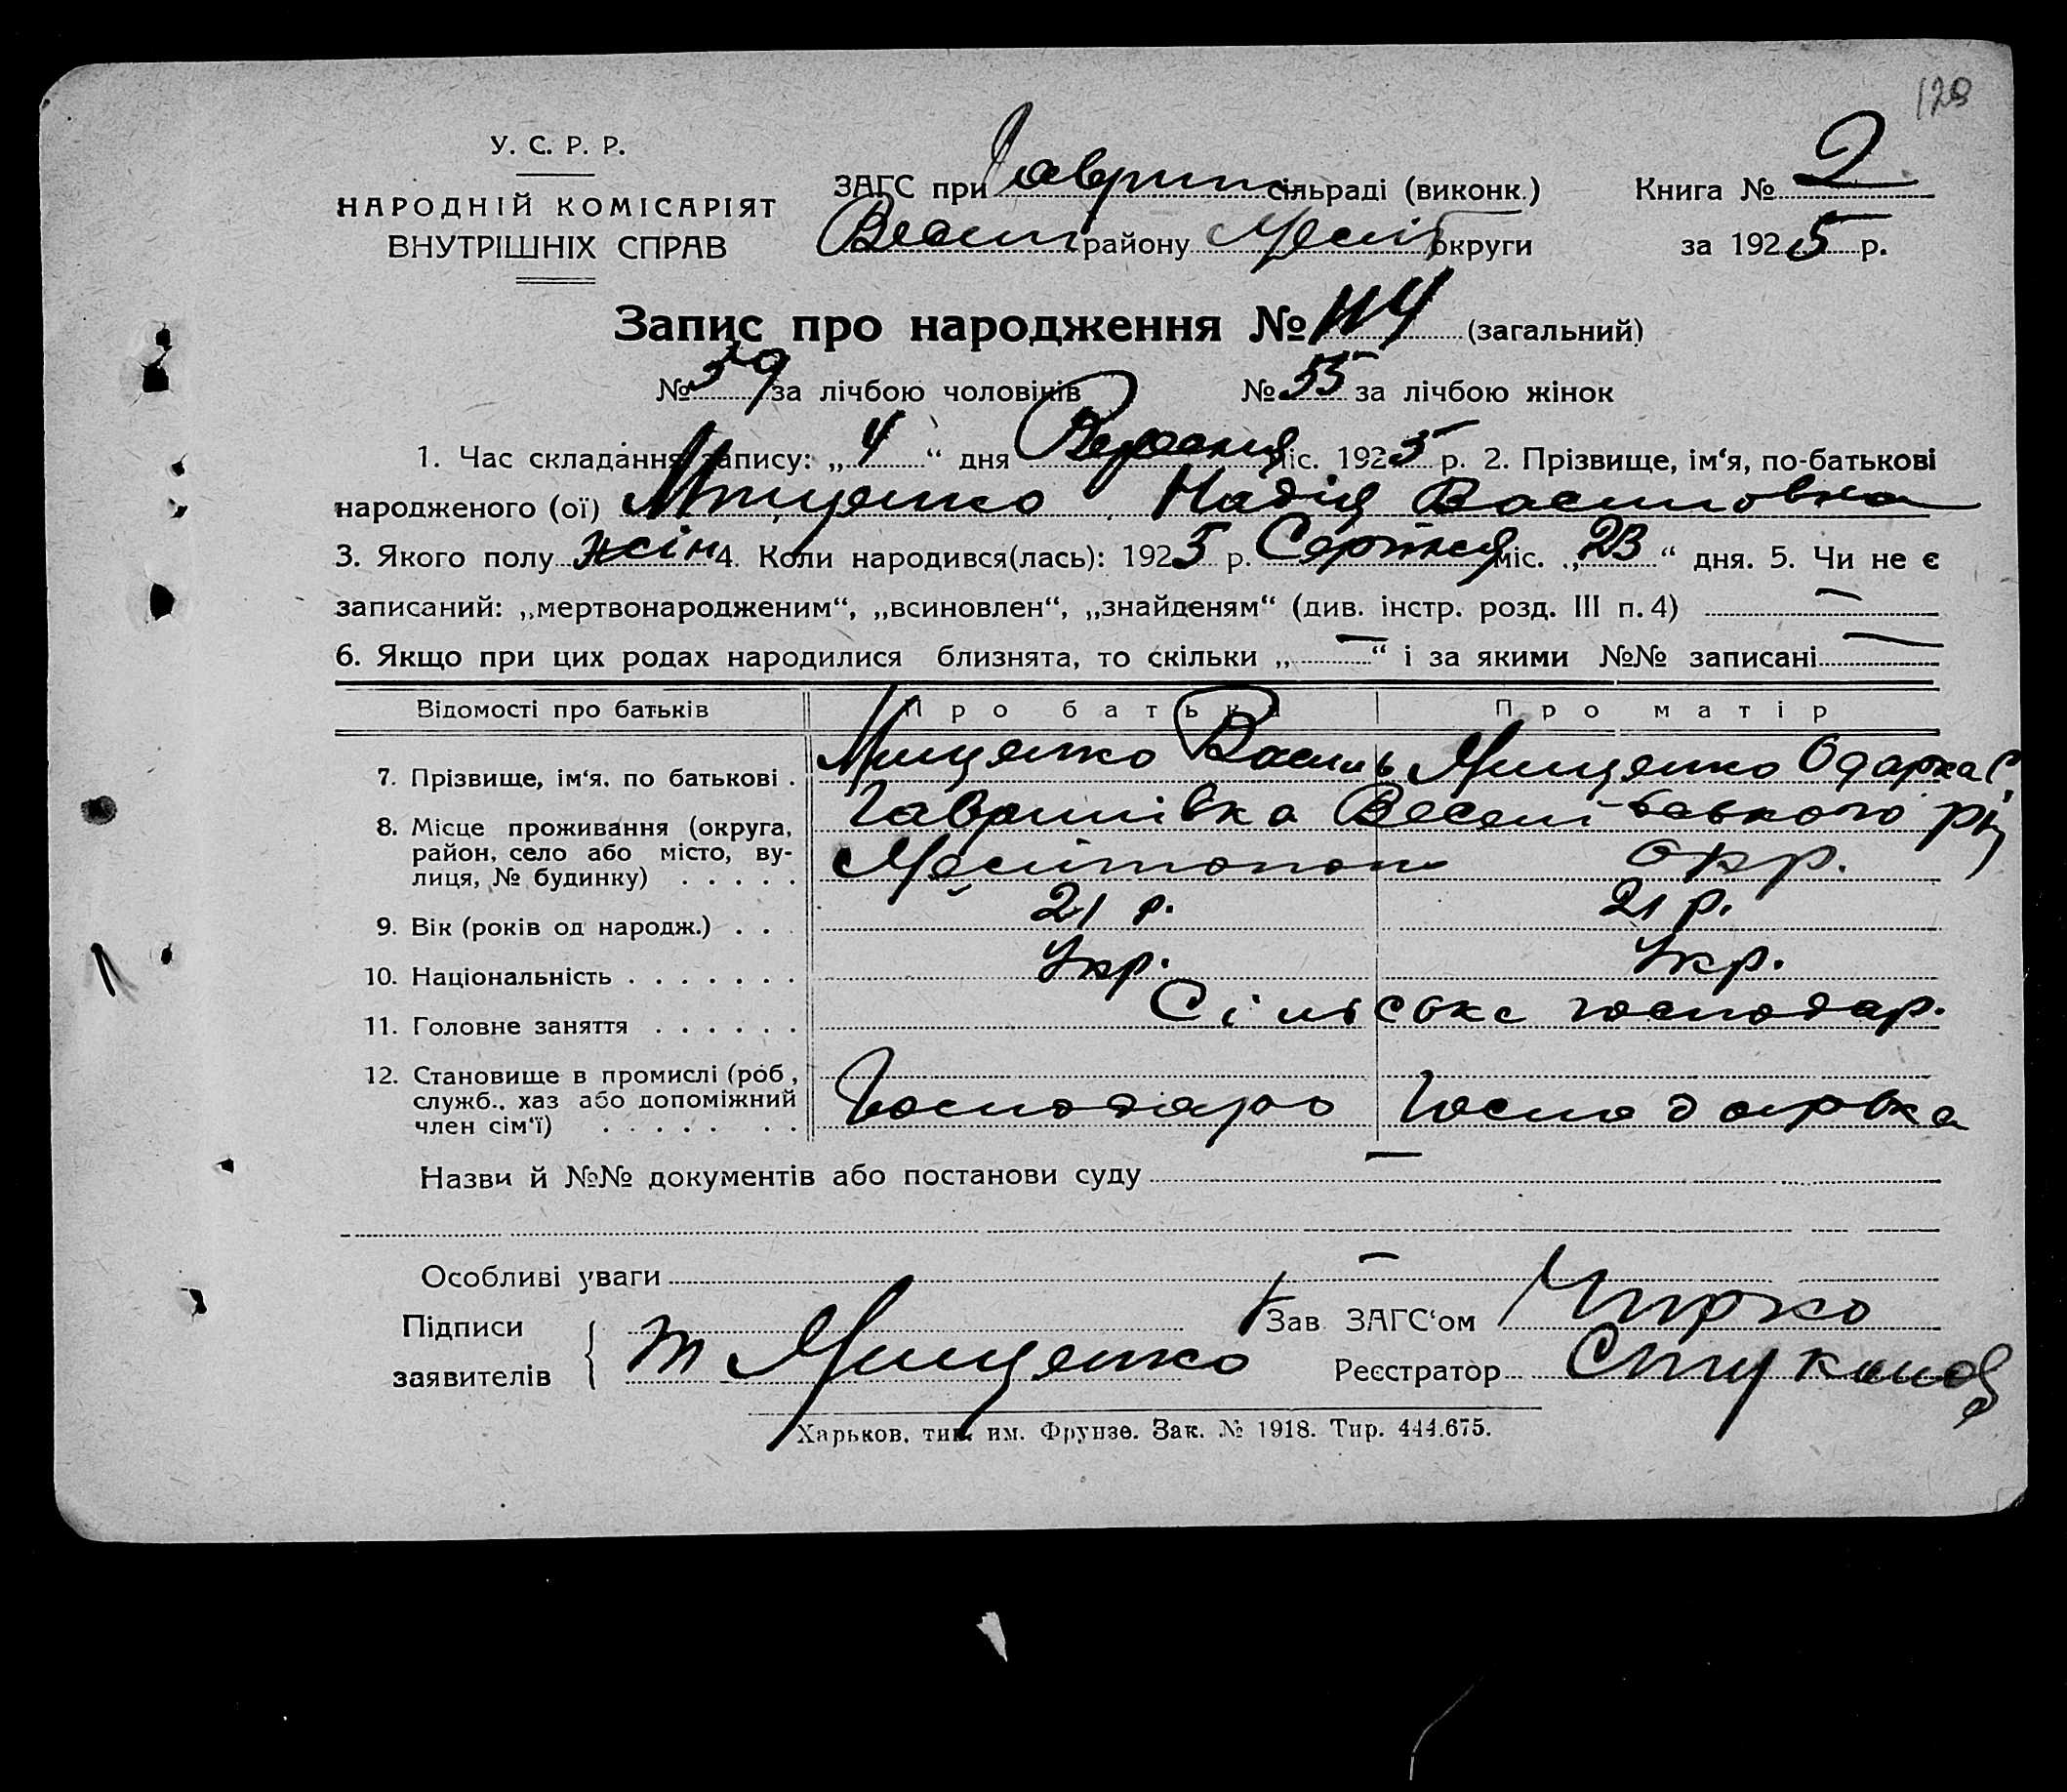 128
У. С. Р. Р.
НАРОДНІЙ КОМІСАРІЯТ
ВНУТРІШНІХ СПРАВ
ЗАГС при Гаврил сільраді (виконк.)
Весел району Меліт округи
Книга № 2
за 1925 р.
Запис про народження № 114 (загальний)
№ 59 за лічбою чоловіків № 55 за лічбою жінок
1. Час складання запису: „4“ дня Вересня міс. 1925 р. 2. Прізвище, ім‘я, по-батькові
народженого (ої) Мищенко Надія Василовна
3. Якого полу жін 4. Коли народився(лась): 1925 р. Серпня міс. „23“ дня. 5. Чи не є
записаний: „мертвонародженим“, „всиновлен“, „знайденям“ (див. інстр. розд. III п. 4) —
6. Якщо при цих родах народилися близнята, то скільки „—“ і за якими №№ записані —
Відомості про батьків Про батька Про матір
7. Прізвище, ім‘я, по батькові . Мищенко Василь Мищенко Одарка С
8. Місце проживання (округа, Гаврилівка Весел
район, село або місто, ву-
лиця, № будинку) . . . . . Мелітопол окр.
9. Вік (років од народж.) . . . 21 р. 21 р.
10. Національність . . . . . . . Укр. Укр.
11. Головне заняття . . . . . . Сільське господар.
12. Становище в промислі (роб,
служб., хаз або допоміжний Господарь Господарька
член сім‘ї) . . . . . . .
Назви й №№ документів або постанови суду —
Особливі уваги —
Підписи
заявителів Мищенко
Зав ЗАГС‘ом Чирко
Реєстратор
Харьков, тип. им. Фрунзе. Зак. № 1918. Тир. 444.675.